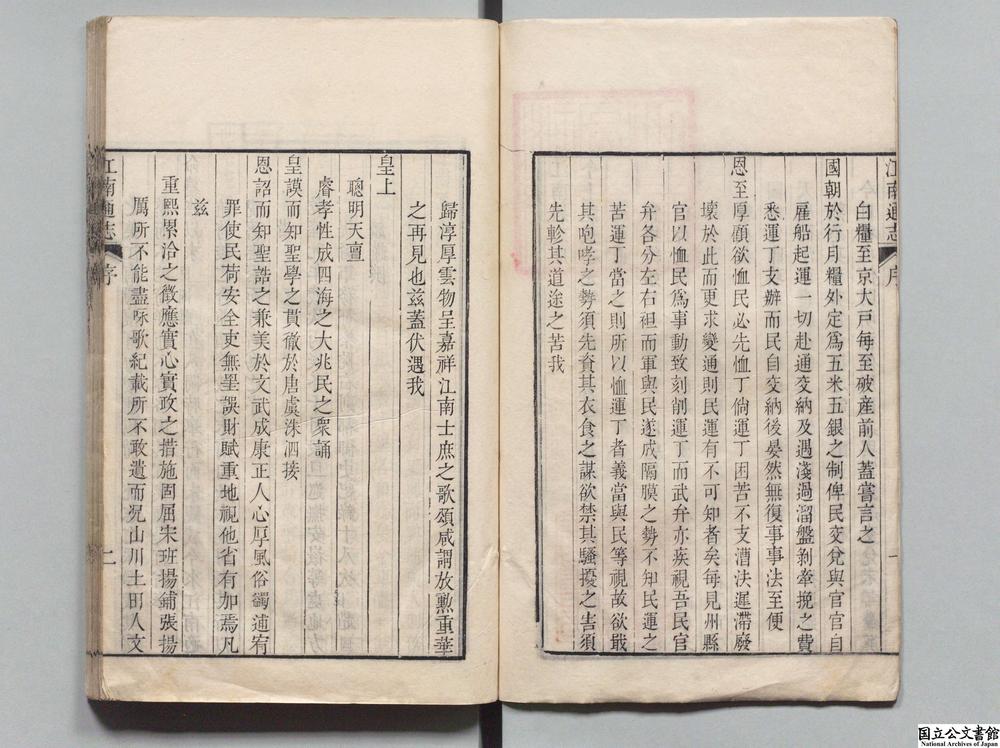 江南通志 序 一
白糧至京大戸每至破産前人蓋嘗言之
國朝於行月糧外定爲五米五銀之制俾民交兌與官官自
雇船起運一切赴通交納及過淺過溜盤剝牽挽之費
悉運丁支辦而民自交納後晏然無復事事法至便
恩至厚顧欲恤民必先恤丁倘運丁困苦不支漕決遲滯廢
壞於此而更求變通則民運有不可知者矣每見州縣
官以恤民爲事動致刻削運丁而武弁亦疾視吾民官
弁各分左右袒而軍與民遂成隔膜之勢不知民運之
苦運丁當之則所以恤運丁者義當與民等視故欲戢
其咆哮之勢須先資其衣食之謀欲禁其騷擾之害須
先軫其道途之苦我
歸淳厚雲物呈嘉祥江南士庶之歌頌咸謂放勲重華
之再見也兹蓋伏遇我
皇上
聰明天亶
睿孝性成四海之大兆民之衆誦
皇謨而知聖學之貫徹於唐虞洙泗接
恩詔而知聖誥之兼美於文武成康正人心厚風俗蠲逋宥
罪使民荷安全吏無罣誤財賦重地視他省有加焉凡
兹
重熙累洽之徵應實心實政之措施固屈宋班揚鋪張揚
厲所不能盡咏歌紀載所不敢遺而况山川土田人文
江南通志 序 二
国立公文書館
National Archives of Japan